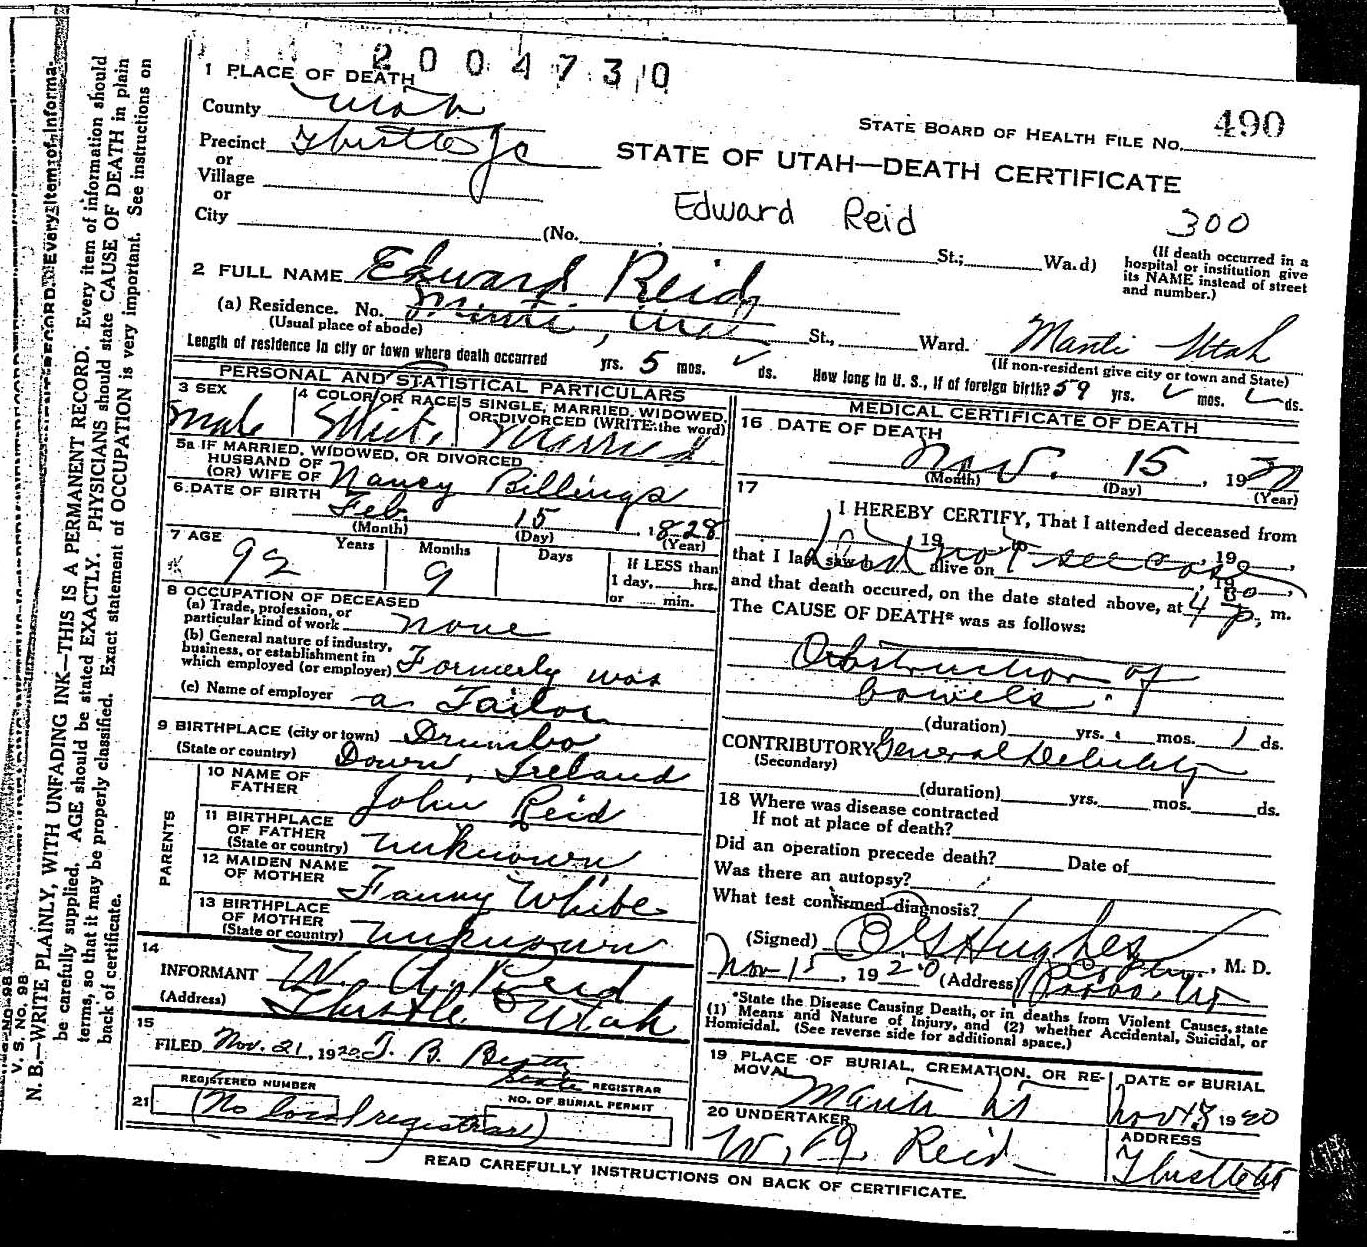 2004730
1 PLACE OF DEATH
County Utah
STATE BOARD OF HEALTH FILE No. 490
Precinct Thistle Jc
or
Village
or
City
STATE OF UTAH—DEATH CERTIFICATE
Edward Reid 300
(No. St.; Wa.d)
(If death occurred in a
hospital or institution give
its NAME instead of street
and number.)
2 FULL NAME Edward Reid
(a) Residence. No. Manti, St., Ward. Manti Utah
(Usual place of abode)
(If non-resident give city or town and State)
Length of residence in city or town where death occurred yrs. 5 mos. ds. How long in U. S., if of foreign birth? 59 yrs. mos. ds.
PERSONAL AND STATISTICAL PARTICULARS
3 SEX
male
4 COLOR OR RACE
White
5 SINGLE, MARRIED, WIDOWED,
OR DIVORCED (WRITE the word)
Married
5a IF MARRIED, WIDOWED, OR DIVORCED
HUSBAND OF
(OR) WIFE OF Nancy Billings
6 DATE OF BIRTH
Feb. 15, 1828
(Month) (Day) (Year)
7 AGE Years Months Days If LESS than
92 9 1 day, hrs.
or min.
8 OCCUPATION OF DECEASED
(a) Trade, profession, or
particular kind of work none
(b) General nature of industry,
business, or establishment in
which employed (or employer) Formerly was
(c) Name of employer a Tailor
9 BIRTHPLACE (city or town) Drumbo
(State or country) Down, Ireland
PARENTS
10 NAME OF
FATHER John Reid
11 BIRTHPLACE
OF FATHER
(State or country) unknown
12 MAIDEN NAME
OF MOTHER Fanny White
13 BIRTHPLACE
OF MOTHER
(State or country) unknown
14
INFORMANT W. A. Reid
(Address) Thistle Utah
15
FILED Nov. 21, 1920 T. B. Beatty
State REGISTRAR
REGISTERED NUMBER NO. OF BURIAL PERMIT
21 (No local registrar)
MEDICAL CERTIFICATE OF DEATH
16 DATE OF DEATH
Nov. 15, 1920
(Month) (Day) (Year)
17
I HEREBY CERTIFY, That I attended deceased from
, 19 to , 19 ,
that I last saw h alive on , 19 ,
Did not see case
and that death occured, on the date stated above, at 4 p. m.
The CAUSE OF DEATH* was as follows:
Obstruction of
bowels.
(duration) yrs. mos. 1 ds.
CONTRIBUTORY General Debility
(Secondary)
(duration) yrs. mos. ds.
18 Where was disease contracted
If not at place of death?
Did an operation precede death? Date of
Was there an autopsy?
What test confirmed diagnosis?
(Signed) Hughes, M. D.
Nov 15, 1920 (Address)
*State the Disease Causing Death, or in deaths from Violent Causes, state
(1) Means and Nature of Injury, and (2) whether Accidental, Suicidal, or
Homicidal. (See reverse side for additional space.)
19 PLACE OF BURIAL, CREMATION, OR RE-
MOVAL Manti Ut
DATE OF BURIAL
Nov 1920
20 UNDERTAKER
W. A. Reid
ADDRESS
Thistle Ut
READ CAREFULLY INSTRUCTIONS ON BACK OF CERTIFICATE.
V. S. No. 98
N. B.—WRITE PLAINLY, WITH UNFADING INK—THIS IS A PERMANENT RECORD. Every item of information should
be carefully supplied. AGE should be stated EXACTLY. PHYSICIANS should state CAUSE OF DEATH in plain
terms, so that it may be properly classified. Exact statement of OCCUPATION is very important. See instructions on
back of certificate.